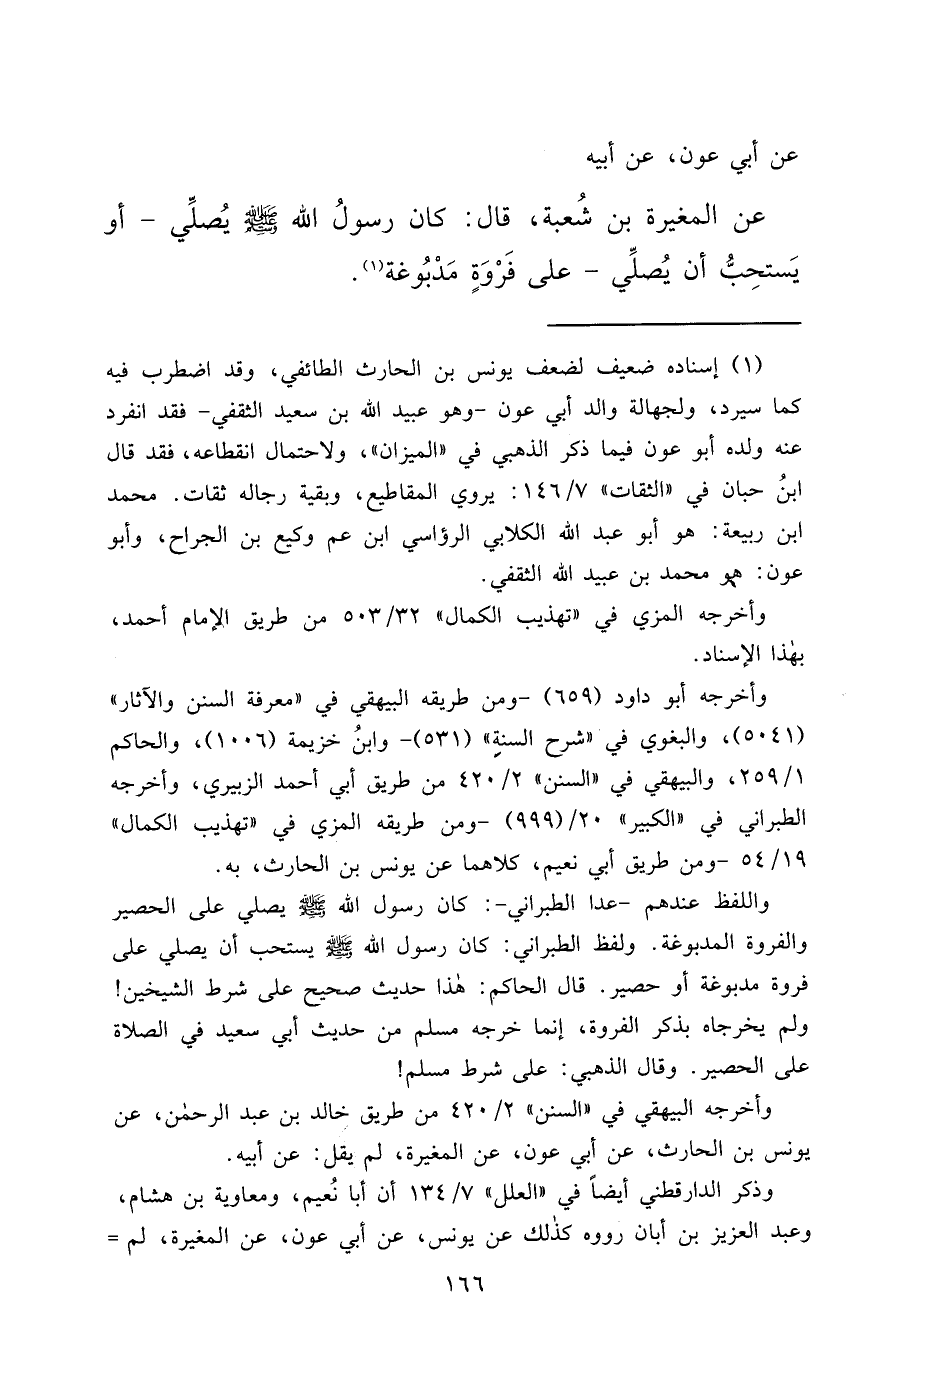 عن أبي عون، عن أبيه
عن المغيرة بن شُعبة، قال: كان رسولُ الله ﷺ يُصلِّي - أو
يَستحِبُّ أن يُصلِّي - على فَرْوَةٍ مَدْبُوغة(١).
(١) إسناده ضعيف لضعف يونس بن الحارث الطائفي، وقد اضطرب فيه
كما سيرد، ولجهالة والد أبي عون -وهو عبيد الله بن سعيد الثقفي- فقد انفرد
عنه ولده أبو عون فيما ذكر الذهبي في «الميزان»، ولاحتمال انقطاعه، فقد قال
ابنُ حبان في «الثقات» ١٤٦/٧: يروي المقاطيع، وبقية رجاله ثقات. محمد
ابن ربيعة: هو أبو عبد الله الكلابي الرؤاسي ابن عم وكيع بن الجراح، وأبو
عون: هو محمد بن عبيد الله الثقفي.
وأخرجه المزي في «تهذيب الكمال» ٥٠٣/٣٢ من طريق الإمام أحمد،
بهٰذا الإسناد.
وأخرجه أبو داود (٦٥٩) -ومن طريقه البيهقي في «معرفة السنن والآثار»
(٥٠٤١)، والبغوي في «شرح السنة» (٥٣١)- وابنُ خزيمة (١٠٠٦)، والحاكم
٢٥٩/١، والبيهقي في «السنن» ٤٢٠/٢ من طريق أبي أحمد الزبيري، وأخرجه
الطبراني في «الكبير» ٢٠/(٩٩٩) -ومن طريقه المزي في «تهذيب الكمال»
٥٤/١٩ -ومن طريق أبي نعيم، كلاهما عن يونس بن الحارث، به.
واللفظ عندهم -عدا الطبراني-: كان رسول الله ﷺ يصلي على الحصير
والفروة المدبوغة. ولفظ الطبراني: كان رسول الله ﷺ يستحب أن يصلي على
فروة مدبوغة أو حصير. قال الحاكم: هٰذا حديث صحيح على شرط الشيخين!
ولم يخرجاه بذكر الفروة، إنما خرجه مسلم من حديث أبي سعيد في الصلاة
على الحصير. وقال الذهبي: على شرط مسلم!
وأخرجه البيهقي في «السنن» ٤٢٠/٢ من طريق خالد بن عبد الرحمٰن، عن
يونس بن الحارث، عن أبي عون، عن المغيرة، لم يقل: عن أبيه.
وذكر الدارقطني أيضاً في «العلل» ١٣٤/٧ أن أبا نُعيم، ومعاوية بن هشام،
وعبد العزيز بن أبان رووه كذٰلك عن يونس، عن أبي عون، عن المغيرة، لم =
١٦٦